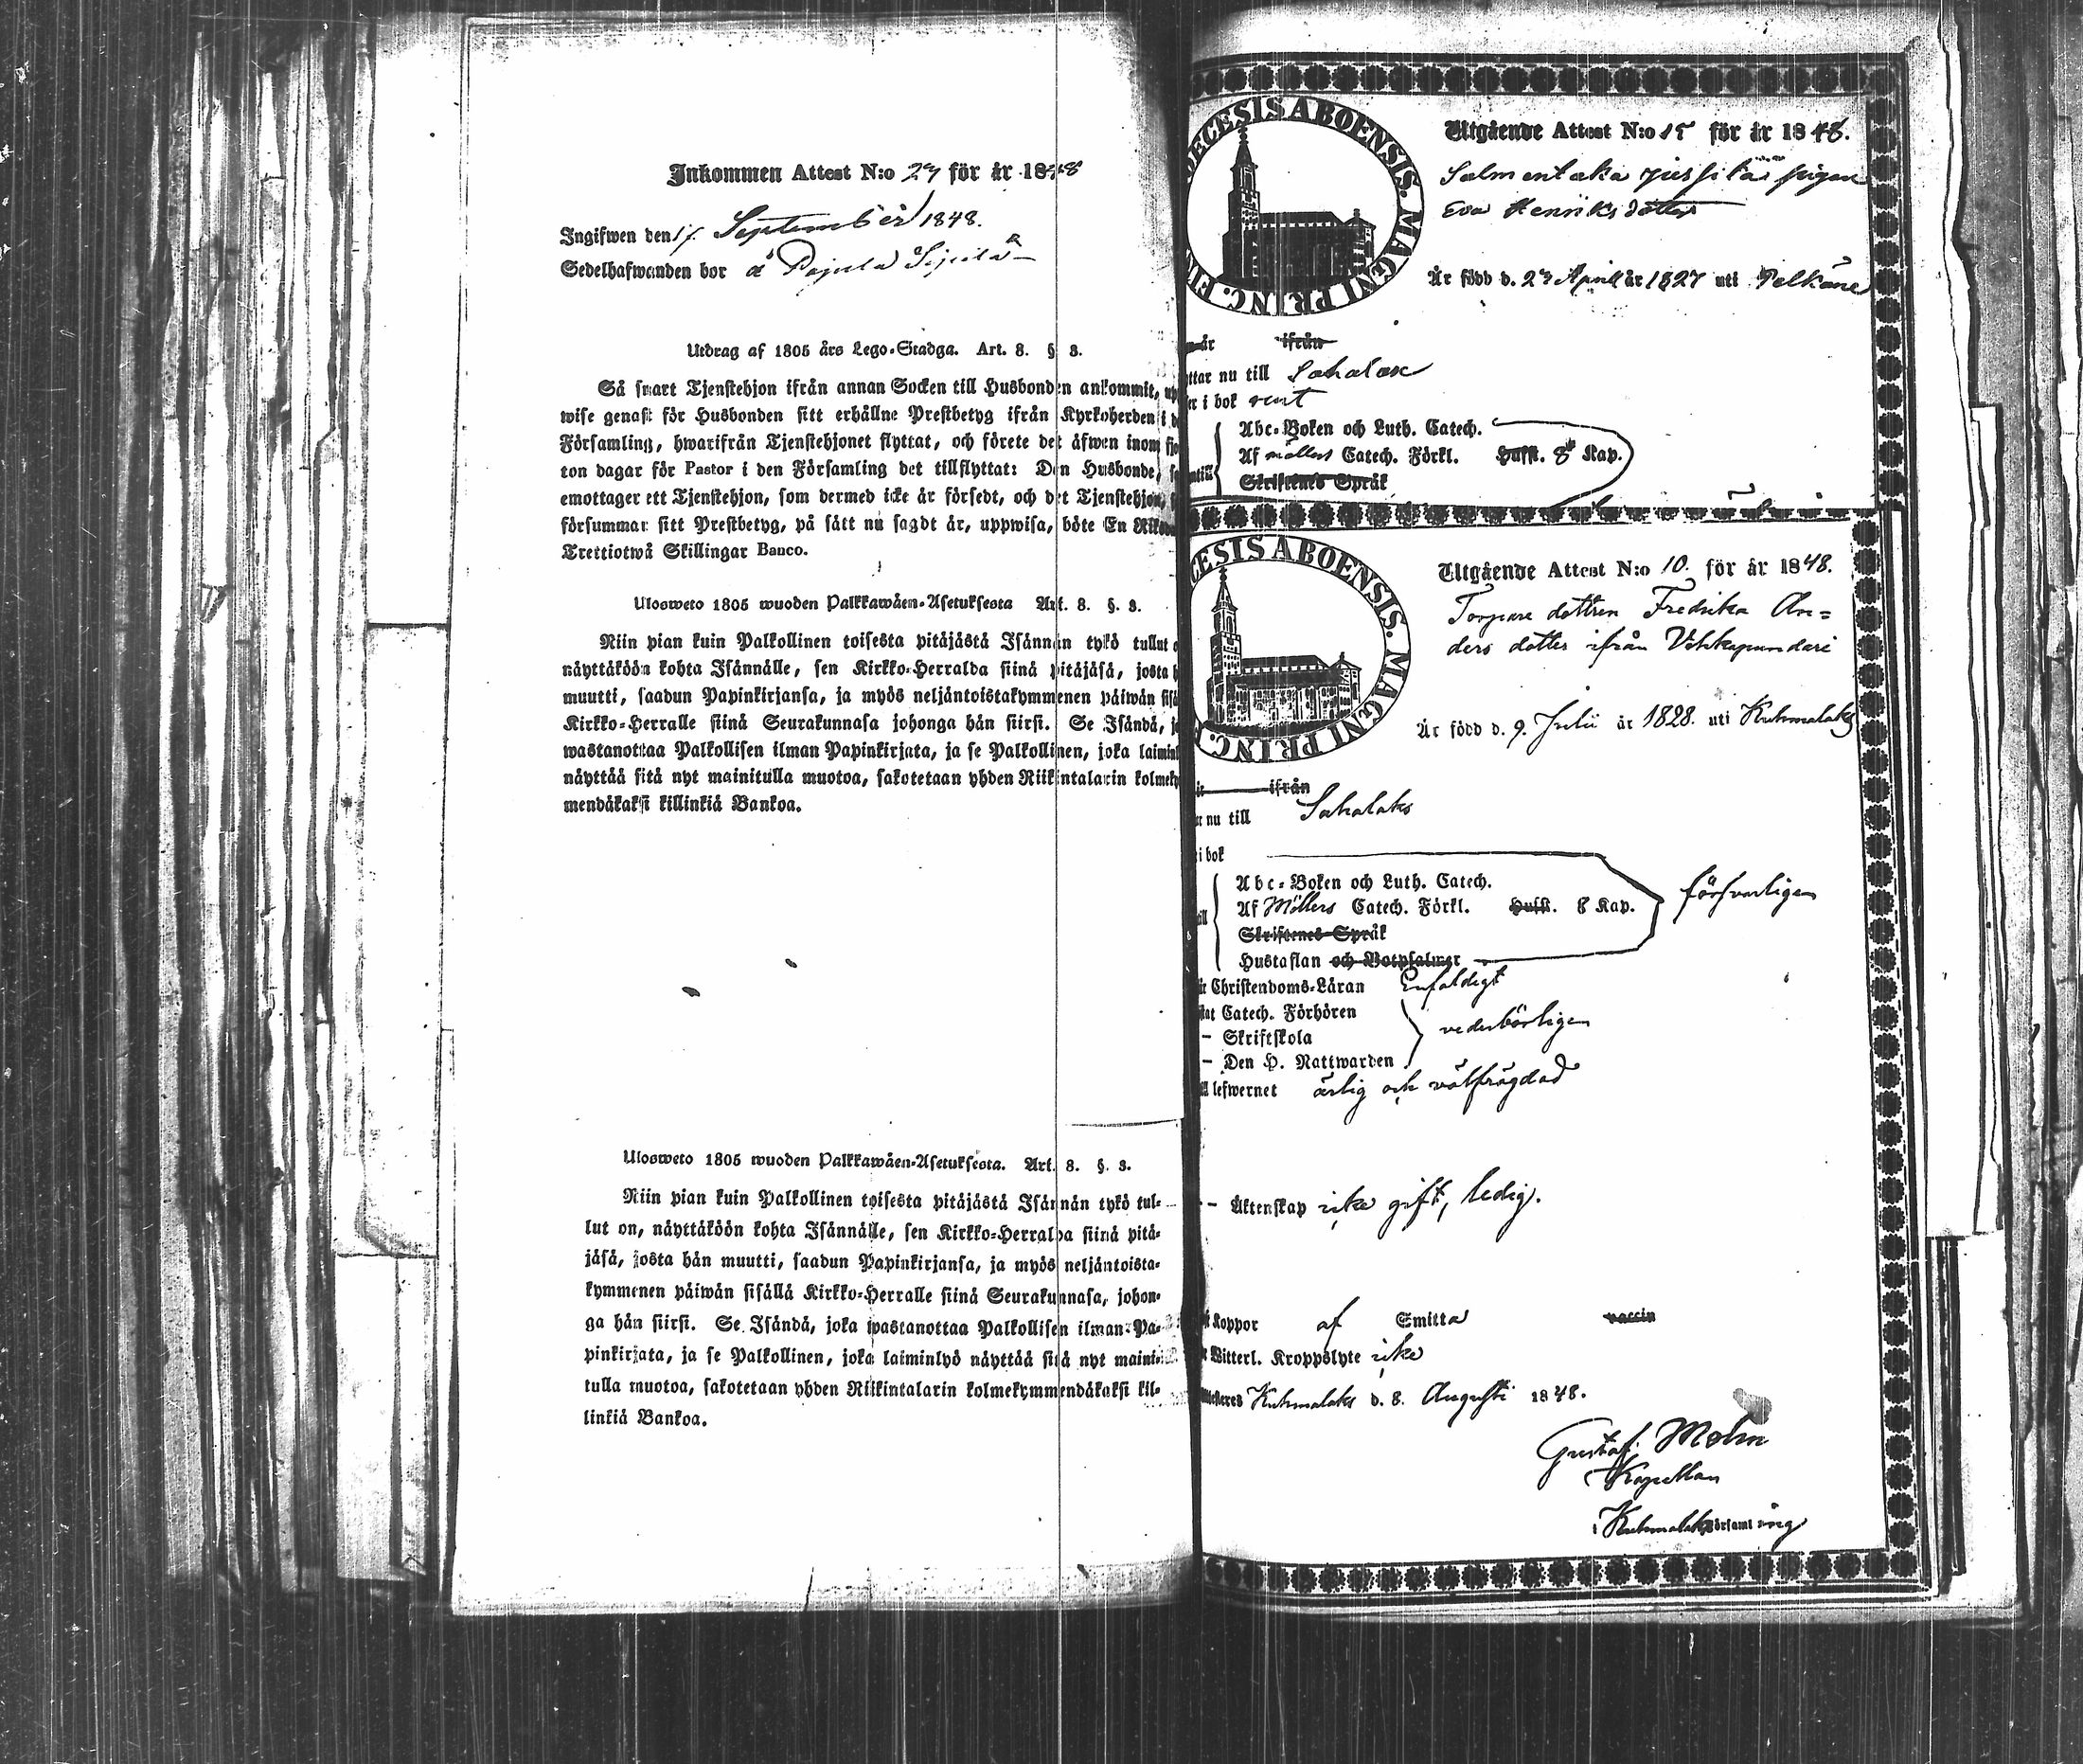 Inkommen Attest N:o 27 för år 1848
Ingifwen den 17. September 1848.
Sedelhafwanden bor å Pajula Sipilä
Utdrag af 1805 års Lego-Stadga. Art. 8. § 3.
Så snart Tjenstehjon ifrån annan Socken till Husbonden ankommit, upp
wise genast för Husbonden sitt erhållne Prestbetyg ifrån Kyrkoherden i de
Församling, hwarifrån Tjenstehjonet flyttat, och förete det äfwen inom fjo
ton dagar för Pastor i den Församling det tillflyttat: Den Husbonde, so
emottager ett Tjenstehjon, som dermed icke är försedt, och det Tjenstehjon, s
försummar sitt Prestbetyg, på sätt nu sagdt är, uppwisa, böte En Riksda
Trettiotwå Skillingar Banco.
Ulosweto 1805 wuoden Palkkawäen-Asetuksesta Art. 8. §. 3.
Niin pian kuin Palkollinen toisesta pitäjästä Isännän tykö tullut o
näyttäköön kohta Isännälle, sen Kirkko-Herralda siinä pitäjäsä, josta h
muutti, saadun Papinkirjansa, ja myös neljäntoistakymmenen päiwän sisä
Kirkko-Herralle siinä Seurakunnasa johonga hän siirsi. Se Isändä, jo
wastanottaa Palkollisen ilman Papinkirjata, ja se Palkollinen, joka laimin
näyttää sitä nyt mainitulla muotoa, sakotetaan yhden Riikintalarin kolmeky
mendäkaksi killinkiä Bankoa.
Ulosweto 1805 wuoden Palkkawäen-Asetuksesta. Art. 8. §. 3.
Niin pian kuin Palkollinen toisesta pitäjästä Isännän tykö tul-
lut on, näyttäköön kohta Isännälle, sen Kirkko-Herralda siinä pitä-
jäsä, josta hän muutti, saadun Papinkirjansa, ja myös neljäntoista-
kymmenen päiwän sisällä Kirkko-Herralle siinä Seurakunnasa, johon-
ga hän siirsi. Se Isändä, joka wastanottaa Palkollisen ilman Pa-
pinkirjata, ja se Palkollinen, joka laiminlyö näyttää sitä nyt maini-
tulla muotoa, sakotetaan yhden Riikintalarin kolmekymmendäkaksi kil-
linkiä Bankoa.
DECESIS ABOENSIS. MAGNI PRINC. FIN
Utgående Attest N:o 15 för år 1848.
Salmentaka Jussila pigan
Eva Henriksdotter
Är född d. 27 April år 1827 uti Pelkäne
är ifrån
ttar nu till Sahalax
er i bok rent
Abc-Boken och Luth. Catech.
Af Möllers Catech. Förkl. Hufst. 8 Kap.
ntill
Skriftenes Språk
CESIS ABOENSIS. MAGNI PRINC.
Utgående Attest N:o 10. för år 1848.
Torpare dottren Fredrika An=
ders dotter ifrån Vehkapundari
Är född d. 9. Julii år 1828. uti Kuhmalaks
ifrån
nu till Sahalaks
i bok
Abc-Boken och Luth. Catech.
Af Möllers Catech. Förkl. Hufst. 8 Kap. försvarligen
Skriftenes Språk
Hustaflan och Botpsalmer
Christendoms-Läran Enfaldigt
Catech. Förhören
– Skriftskola vederbörligen
– Den H. Nattwarden
lefwernet ärlig och välfrägdad
– Äktenskap icke gift, ledig.
Koppor af Smitta vaccin
Witterl. Kroppslyte icke
Kuhmalaks d. 8. Augusti 1848.
Gustaf Molin
Kapellan
i Kuhmalaks församling